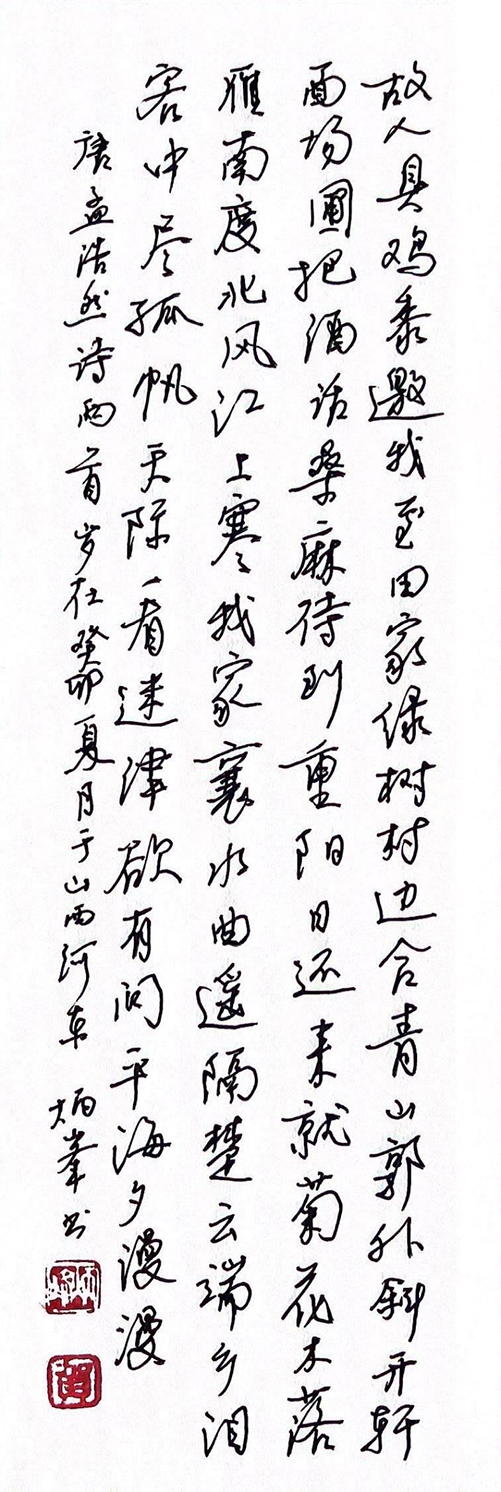 故人具鸡黍邀我至田家绿树村边合青山郭外斜开轩
面场圃把酒话桑麻待到重阳日还来就菊花木落
雁南度北风江上寒我家襄水曲遥隔楚云端乡泪
客中尽孤帆天际看迷津欲有问平海夕漫漫
唐孟浩然诗两首岁在癸卯夏月于山西河东 炳峯书
賀